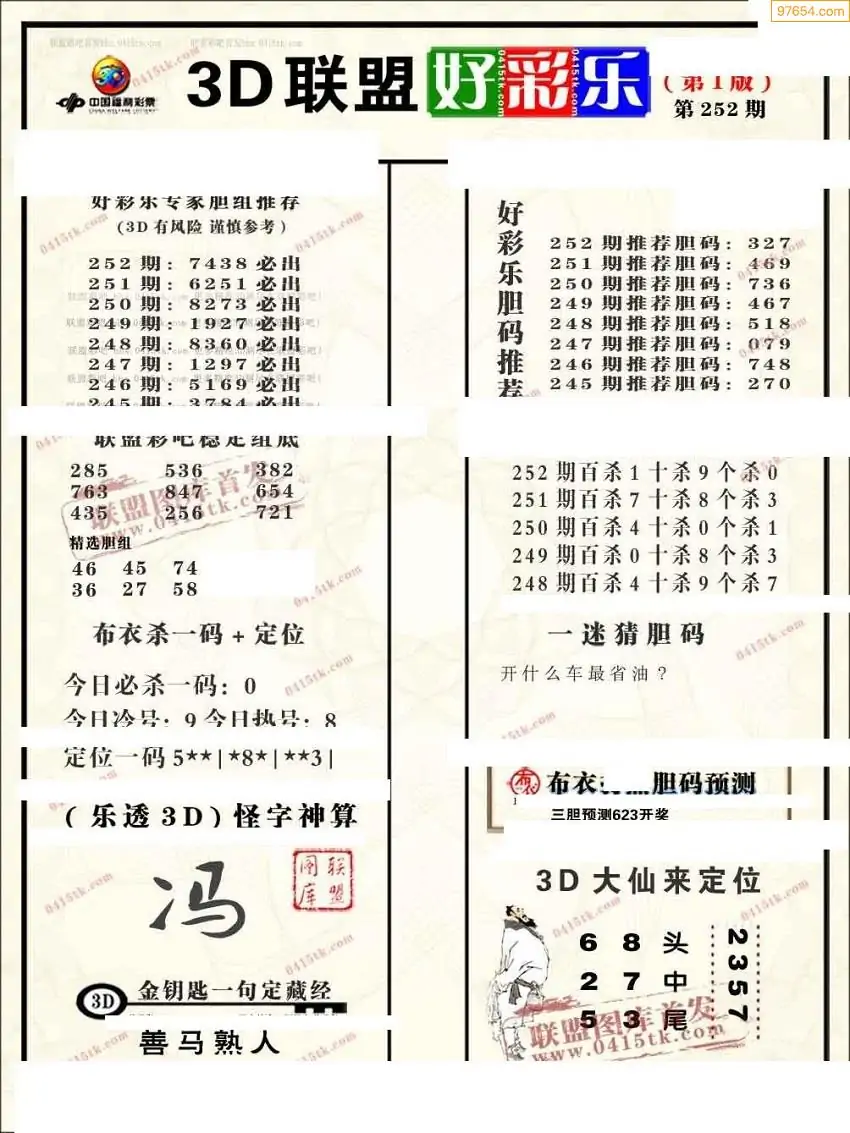 97654.com
中国福利彩票
CHINA WELFARE LOTTERY
3D联盟好彩乐
0415tk.com
0415tk.com
0415tk.com
(第1版)
第252期
好彩乐专家胆组推荐
(3D有风险 谨慎参考)
252期: 7438必出
251期: 6251必出
250期: 8273必出
249期: 1927必出
248期: 8360必出
247期: 1297必出
246期: 5169必出
245期: 3784必出
联盟彩吧稳定组底
285 536 382
763 847 654
435 256 721
联盟图库首发
www.0415tk.com
精选胆组
46 45 74
36 27 58
布衣杀一码+定位
今日必杀一码: 0
今日冷号: 9 今日热号: 8
定位一码5**|*8*|**3|
(乐透3D)怪字神算
冯
联盟图库
3D
金钥匙一句定藏经
善马熟人
好彩乐胆码推荐
252期推荐胆码: 327
251期推荐胆码: 469
250期推荐胆码: 736
249期推荐胆码: 467
248期推荐胆码: 518
247期推荐胆码: 079
246期推荐胆码: 748
245期推荐胆码: 270
252期百杀1十杀9个杀0
251期百杀7十杀8个杀3
250期百杀4十杀0个杀1
249期百杀0十杀8个杀3
248期百杀4十杀9个杀7
一迷猜胆码
开什么车最省油?
布衣
布衣
胆码预测
1
三胆预测623开奖
3D大仙来定位
6 8 头
2 7 中
5 3 尾
2357
联盟图库首发
www.0415tk.com